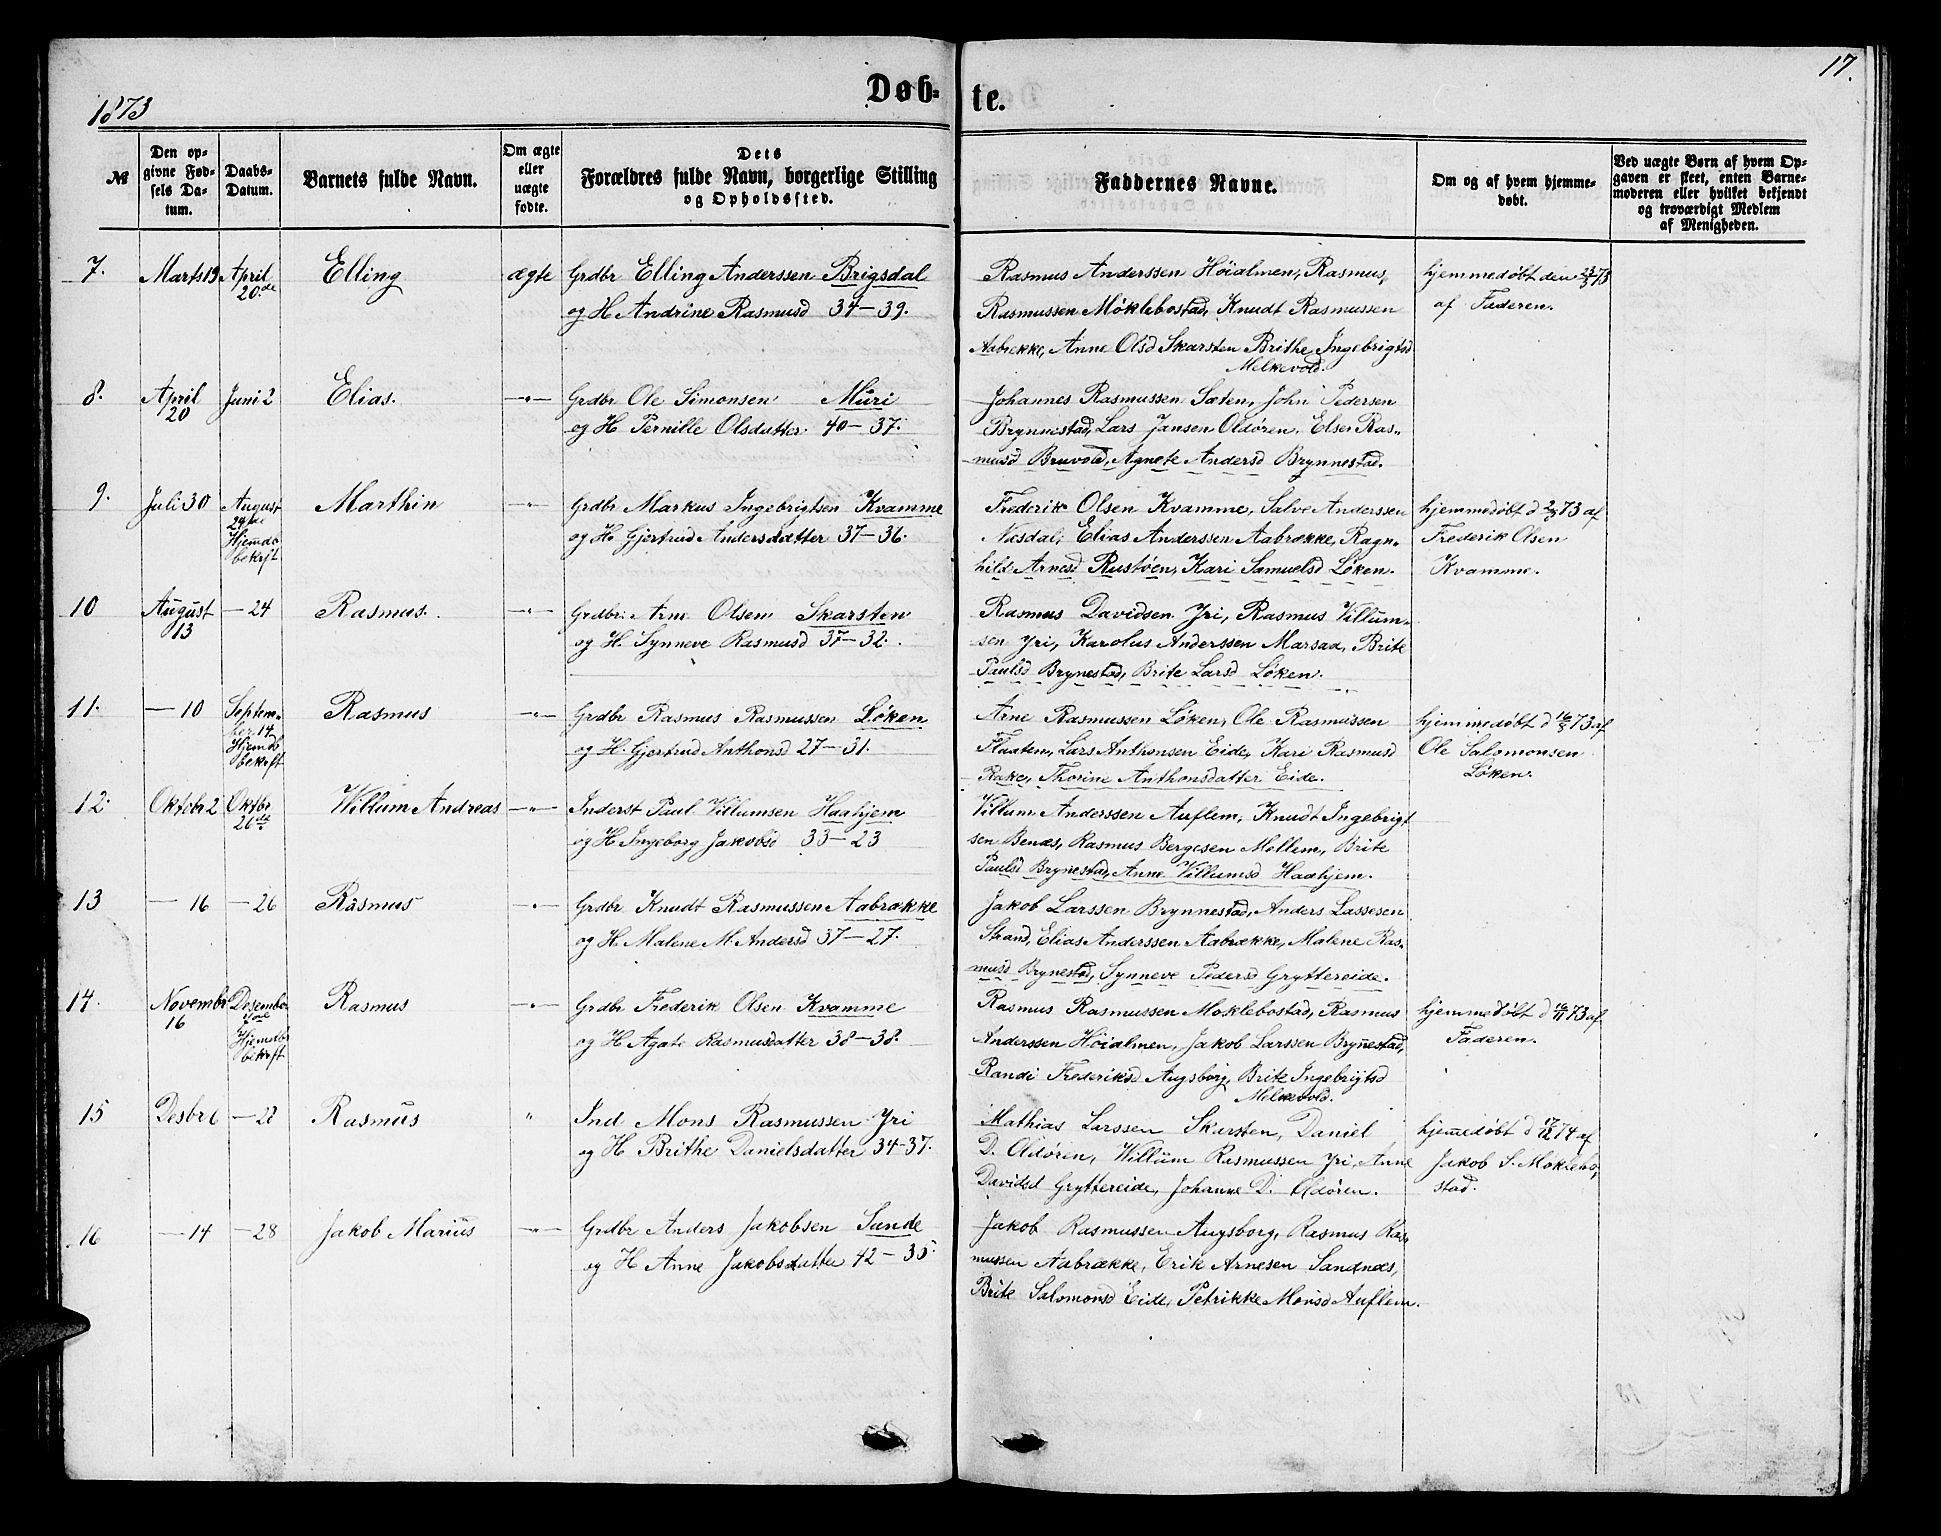 17.
1873
Døb-
te.
№
Den op-
givne Fød-
sels Da-
tum.
Daabs-
Datum.
Barnets fulde Navn.
Om ægte
eller
uægte
fødte.
Dets
Forældres fulde Navn, borgerlige Stilling
og Opholdssted.
Faddernes Navne.
Om og af hvem hjemme-
døbt.
Ved uægte Børn af hvem Op-
gaven er skeet, enten Barne-
moderen eller hvilket bekjendt
og troværdigt Medlem
af Menigheden.
7.
Marts 19
April
20de
Elling
ægte
Grdbr Elling Anderssen Brigsdal
og H Andrine Rasmusd 34-39.
Rasmus Anderssen Höialmen, Rasmus
Rasmussen Møklebostad, Knudt Rasmussen
Aabrekke, Anne Olsd Skarsten Brithe Ingebrigtsd
Melkevold.
hjemmedøbt den 23/3 73
af Faderen.
8.
April
20
Juni 2
Elias.
—"—
Grdbr Ole Simonsen Müri
og H Pernille Olsdatter. 40-37.
Johannes Rasmussen Sæten, John Pedersen
Brynnestad, Lars Jansen Oldøren, Else Ras-
musd Bruvold, Agnete Andersd Brynnestad.
9.
Juli 30
August
24de
Hjemdb
bekrft
Marthin
—"—
Grdbr Markus Ingebrigtsen Kvamme
og H. Gjertrud Andersdatter 37-36.
Frederik Olsen Kvamme, Salve Anderssen
Nesdal, Elias Anderssen Aabrække, Ragn-
hild Arnesd Rustøen, Kari Samuelsd Løken.
hjemmedøbt d 73 af
Frederik Olsen
Kvamme.
10
August
13
— 24
Rasmus.
—"—
Grdbr. Arne Olsen Skarsten
og H. Synneve Rasmusd 37-32.
Rasmus Davidsen Yri, Rasmus Villum-
sen Yri, Karolus Anderssen Marsaa, Brite
Paulsd Brynestad, Brite Larsd Løken.
11.
— 10
Septem-
ber 14
Hjemdb
bekrft
Rasmus
—"—
Grdbr Rasmus Rasmussen Løken
og H. Gjertrud Anthonsd 27-31.
Arne Rasmussen Løken, Ole Rasmussen
Flaaten, Lars Anthonsen Eide, Kari Rasmusd
Rake, Thorine Anthonsdatter Eide.
hjemmedøbt d 73 af
Ole Salomonsen
Løken.
12.
Oktobr 2
Oktbr
26de
Willum Andreas
—"—
Inderst Paul Villumsen Haahjem
og H Ingeborg Jakobsd 33-23
Villum Anderssen Auflem, Knudt Ingebrigt
sen Benæs, Rasmus Bergesen Mellem, Brite
Paulsd Brynestad, Anne Villumsd Haahjem.
13
— 16
— 26
Rasmus
—"—
Grdbr Knudt Rasmussen Aabrække
og H. Malene M. Andersd 37-27.
Jakob Larssen Brynnestad, Anders Lassesen
Strand, Elias Anderssen Aabrække, Malene Ras-
musd Brynestad, Synneve Pedersd Gryttereide.
14.
Novembr
16
Desember
Hjemdbt
bekrft
Rasmus
—"—
Grdbr Frederik Olsen Kvamme
og H Agate Rasmusdatter 38-38.
Rasmus Rasmussen Moklebostad, Rasmus
Anderssen Höialmen, Jakob Larssen Brynestad,
Randi Frederiksd Augsborg, Brite Ingebrigtsd
Melkevold.
hjemmedøbt d 16/11 73 af
Faderen.
15
Desbr 6
— 28
Rasmus
"
Ind Mons Rasmussen Yri
og H Brithe Danielsdatter 34-37.
Mathias Larssen Skarsten, Daniel
D. Oldøren, Willüm Rasmussen Yri, Anne
Davidsd Gryttereide, Johanne D. Oldøren.
hjemedøbt d 74 af
Jakob S. Moklebo
stad.
16
— 14
— 28
Jakob Mariüs
—"—
Grdbr Anders Jakobsen Sande
og H Anne Jakobsdatter 42-35.
Jakob Rasmussen Augsborg, Rasmus Ras-
mussen Aabrække, Erik Arnesen Sandnes,
Brite Salomonsd Eide, Petrikke Monsd Auflem.